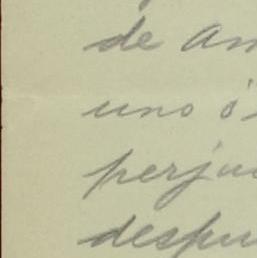 de am
uno ó
perju
despu